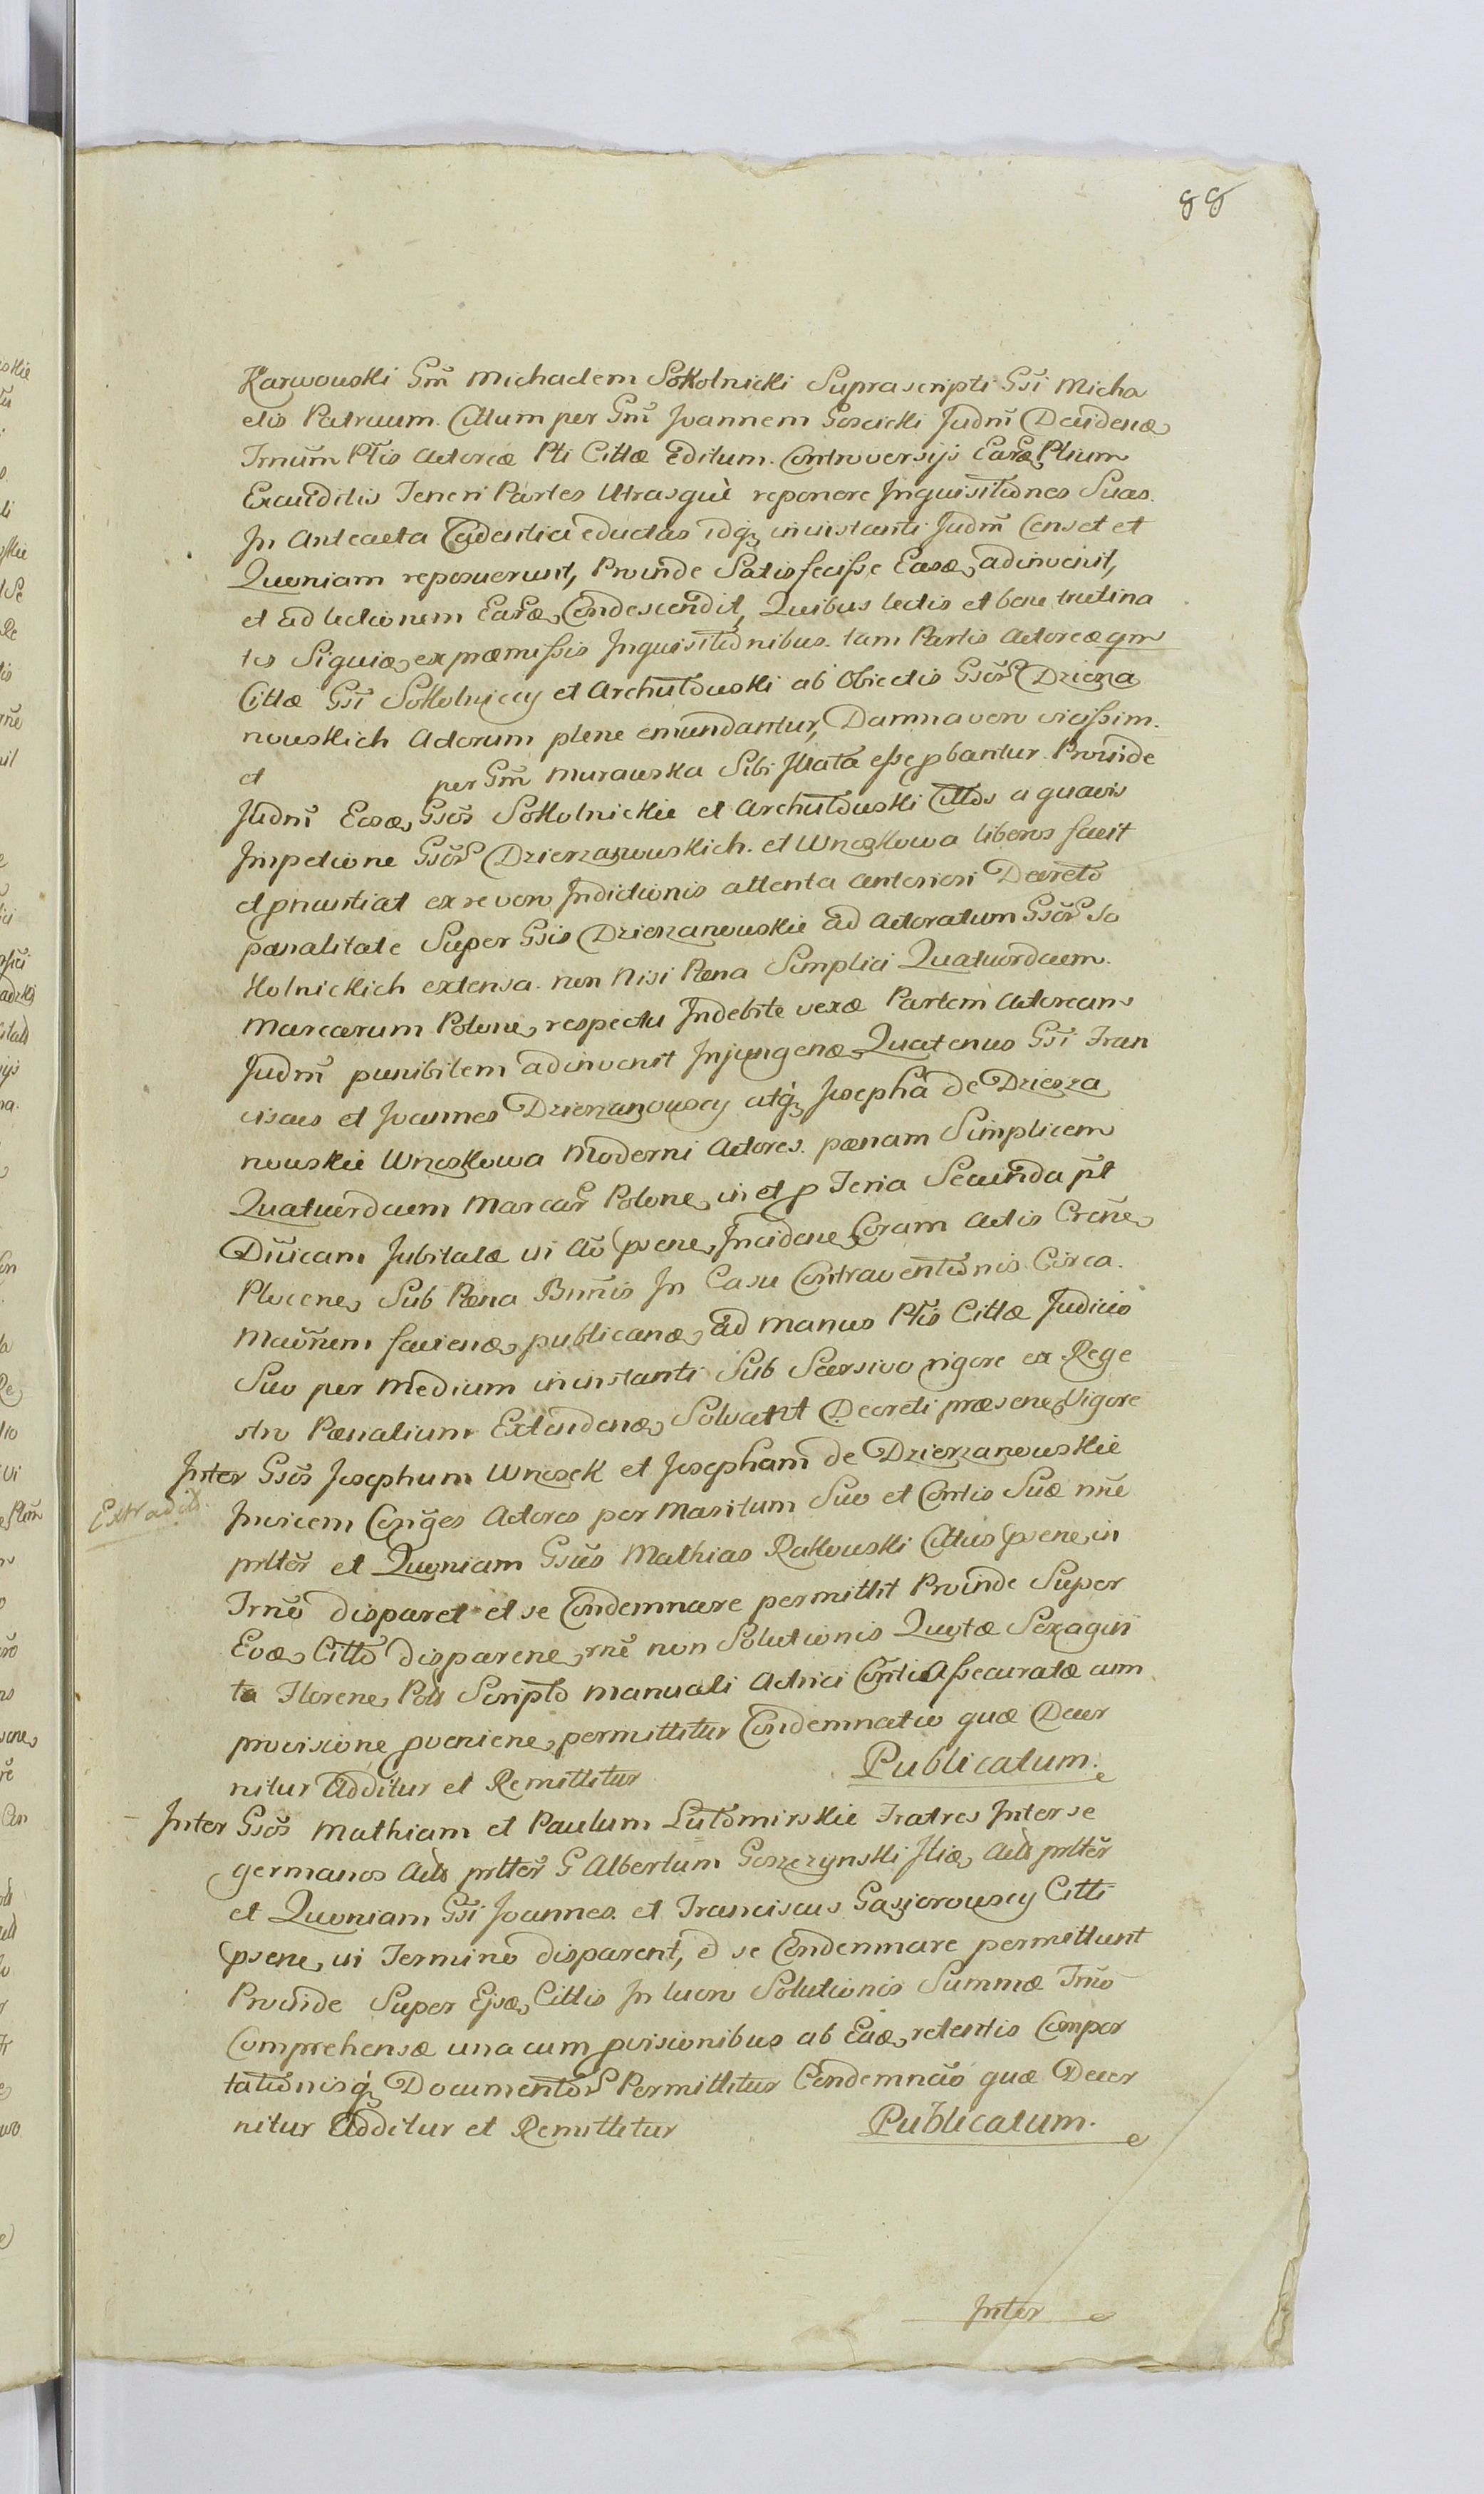 88
Karwowski Gm̃ Michaelem Sokolnicki Suprascripti Gsi Micha
elis Patruum. Cittum per Gm̃ Joannem Goscicki Judm̃ Decidenæ
Trnum̃ Ptis Actoreæ Pti Cittæ Editum. Controversijs Earæ Ptium
Exauditis Teneri Partes Utrasquè reponere Inquisitiones Suas.
In Anteacta Cadentia eductas idq; in instanti Judm̃ Censet et
Quoniam reposuerunt, Proinde Satisfecisse Easæ, adinvenit,
et ad lectionem Earæ, Condescendit, Quibus lectis et bene trutina
tis Siquiæ, ex præmissis Inquisitionibus. tam Partis Actoreæ qm
Cittæ Gsi Sokolniccy et Archutowski ab Obiectis Gsor̃ Dzierza
nowskich Actorum plene emundantur, Damna vero vicissim.
et per Gm̃ Murawska Sibi Illata esse pbantur. Proinde
Judm̃ Eosæ, Gsos̃ Sokolnickie et Archutowski Cittos a quavis
Impetione Gsor̃ Dzierzanowskich. et Wnoskowa liberos facit
et pnuntiat ex re vero Indictionis attenta anteriori Decreto
pænalitate Super Gsis Dzierzanowskie ad Actoratum Gsor̃ So
kolnickich extensa. non Nisi Pæna Simplici Quatuordecem.
Marcarum Polone, respectu Indebite vexæ Partem Actoream
Judm̃ punibilem adinvenit Injungenæ, Quatenus Gsi Fran
ciscus et Joannes Dzierzanowscy atq; Josepha de Dzierza
nowskie Wnoskowa Moderni Actores. pænam Simplicem
Quatuordecem Marcar̃ Polone, in et p Feria Secunda pt̃
Dnicam Jubilatæ in Aõ psene, Incidene, Coram Actis Crene,
Plocene, Sub Pæna Bnnis In Casu Contraventionis Circa.
Maiñem faciendæ, publicanæ, ad manus Ptis Cittæ Judicio
Suo per Medium in instanti Sub Scersivo rigore ex Rege
stro Pænalium Extendenæ, Solvant Decreti præsene, Vigore
Inter Gsos̃ Josephum Wnosek et Josepham de Dzierzanowskie
Extradit.
Invicem Conges Actores per Maritum Suo et Contis Suæ nñe
prlter̃ et Quoniam Gsus̃ Mathias Rakowski Cittus psene, in
Trno disparet et se Condemnare permittit Proinde Super
Eoæ, Citto disparene, rne non Solutionis Quotæ Sexagin
ta Florene, Pols Scripto manuali Actrici Contis Assecuratæ cum
provisione pveniene, permittitur Condemnatio quæ Decer
nitur Additur et Remittitur Publicatum.
Inter Gsos̃ Mathiam et Paulum Lutomirskie Fratres Inter se
germanos Acts prlter̃ G Albertum Goszczynski Iliæ, Acts prlter̃
et Quoniam Gsi Joannes. et Franciscus Gasiorowscy Citti
psene, in Termino disparent, et se Condemnare permittunt
Proinde Super Ejsæ, Cittis In lucro Solutionis Summæ Trno
Comprehensæ una cum pvisionibus ab Eaæ, retentis Compor
tationisq; Documentor̃ Permittitur Condemnao quæ Decer
nitur Additur et Remittitur Publicatum.
Inter